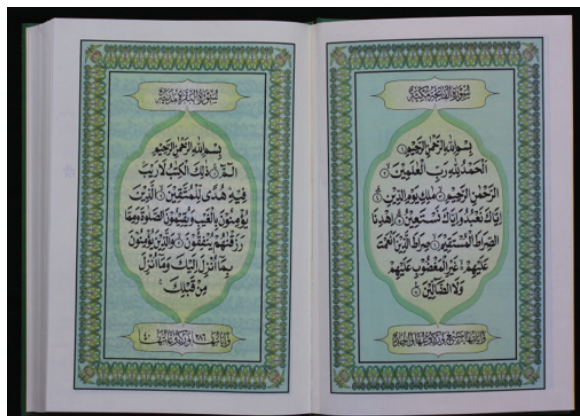 سورة الفاتحة مكية
بسم الله الرحمن الرحيم ١
الحمد لله رب العلمين ٢
الرحمن الرحيم ٣ ملك يوم الدين ٤
إياك نعبد وإياك نستعين ٥ اهدنا
الصراط المستقيم ٦ صراط الذين أنعمت
عليهم ۙ غير المغضوب عليهم
ولا الضالين ٧
وآياتها سبع وركوعها واحدة
سورة البقرة مدنية
بسم الله الرحمن الرحيم
الم ١ ذلك الكتب لا ريب
فيه هدى للمتقين ٢ الذين
يؤمنون بالغيب ويقيمون الصلوة ومما
رزقنهم ينفقون ٣ والذين يؤمنون
بما أنزل إليك وما أنزل
من قبلك
وآياتها ٢٨٦ وركوعاتها ٤٠